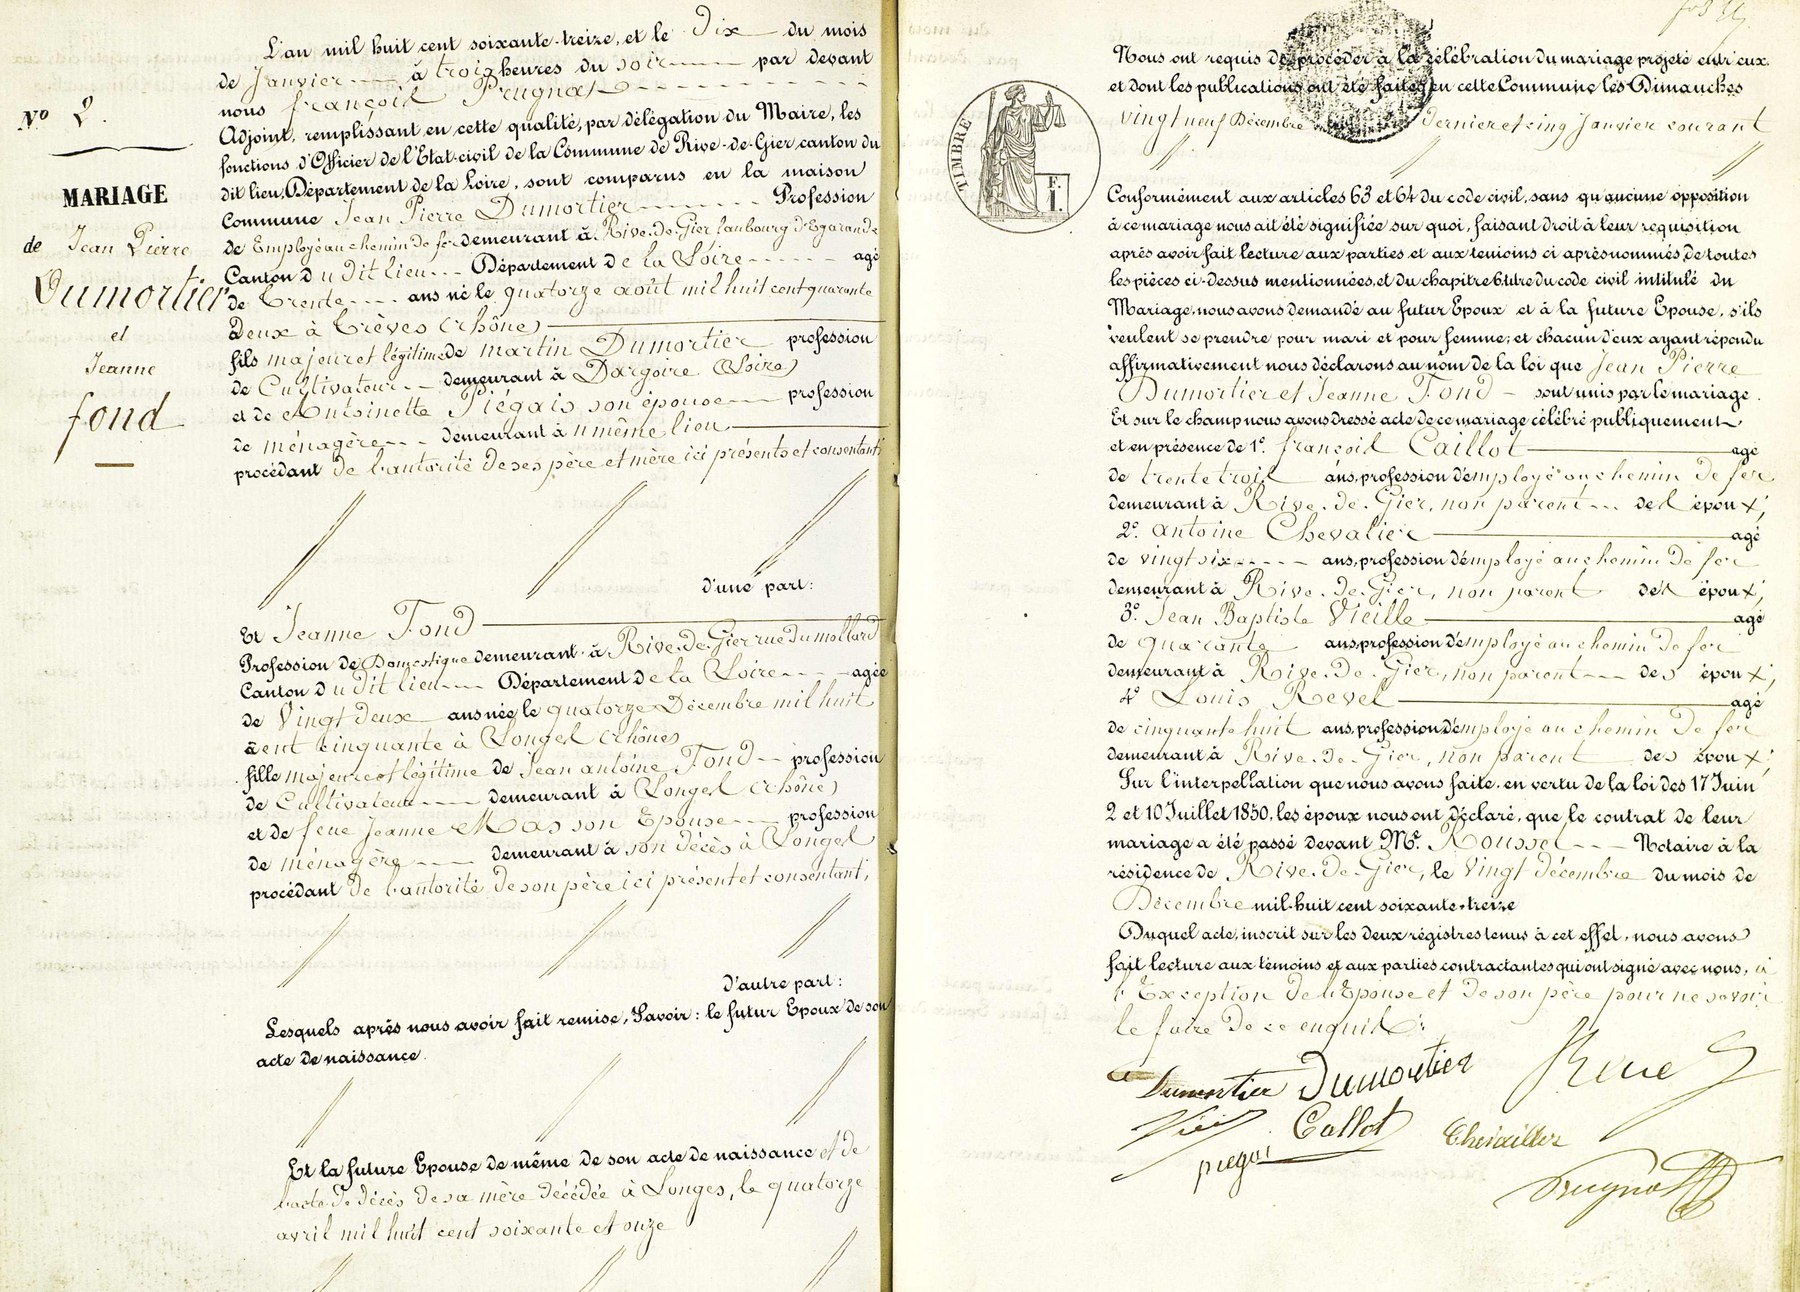 L'an mil huit cent soixante-treize, et le Dix du mois
de Janvier à trois heures du soir par devant
nous françois Prugnat
Adjoint, remplissant en cette qualité, par délégation du Maire, les
fonctions d'Officier de l'Etat-civil de la Commune de Rive-de-Gier, canton du
dit lieu, Département de la Loire, sont comparus en la maison
Commune Jean Pierre Dumortier Profession
de Employé au chemin de fer demeurant à Rive-de-Gier faubourg d'Egarande
Canton du dit lieu Département de la Loire agé
de trente ans né le quatorze août mil huit cent quarante
Deux à Trèves (Rhône)
fils majeur et légitime de martin Dumortier profession
de Cultivateur demeurant à Dargoire (Loire)
et de Antoinette Piégais son épouse profession
de ménagère demeurant à u même lieu
procédant de l'autorité de ses père et mère ici présents et consentants
d'une part:
Nº 2.
MARIAGE
de Jean Pierre
Dumortier
et
Jeanne
fond
Et Jeanne Fond
Profession de Domestique demeurant à Rive-de-Gier rue du mollard
Canton du dit lieu Département de la Loire agée
de Vingt deux ans née le quatorze Décembre mil huit
cent cinquante à Longes (Rhône)
fille majeure et légitime de Jean antoine Fond profession
de Cultivateur demeurant à Longes (Rhône)
et de feue Jeanne Mas son Epouse profession
de ménagère demeurant à son décès à Longes
procédant de l'autorité de son père ici présent et consentant,
d'autre part:
Lesquels après nous avoir fait remise, Savoir: le futur Epoux de son
acte de naissance.
Et la future Epouse de même de son acte de naissance et de
l'acte de décès de sa mère décédée à Longes, le quatorze
avril mil huit cent soixante et onze
Nous ont requis de procéder à la célébration du mariage projeté entr'eux
et dont les publications ont été faites en cette Commune les Dimanches
vingt neuf Décembre dernier et cinq Janvier courant
TIMBRE
F.
1.
Conformément aux articles 63 et 64 du code civil, sans qu'aucune opposition
à ce mariage nous ait été signifiée sur quoi, faisant droit à leur requisition
après avoir fait lecture aux parties et aux témoins ci après nommés de toutes
les pièces ci-dessus mentionnées, et du chapitre 6, titre du code civil intitulé du
Mariage, nous avons demandé au futur Epoux et à la future Epouse, s'ils
veulent se prendre pour mari et pour femme; et chacun d'eux ayant répondu
affirmativement nous déclarons au nom de la loi que Jean Pierre
Dumortier et Jeanne Fond sont unis par le mariage.
Et sur le champ nous avons dressé acte de ce mariage célébré publiquement
et en présence de 1º. françois Caillot agé
de trente trois ans, profession d'employé au chemin de fer
demeurant à Rive-de-Gier, non parent des époux;
2º. antoine Chevalier agé
de vingt six ans, profession d'employé au chemin de fer
demeurant à Rive-de-Gier, non parent des époux;
3º. Jean Baptiste Vieille agé
de quarante ans, profession d'employé au chemin de fer
demeurant à Rive-de-Gier, non parent des époux;
4º Louis Revel agé
de cinquante huit ans, profession d'employé au chemin de fer
demeurant à Rive-de-Gier, non parent des époux;
Sur l'interpellation que nous avons faite, en vertu de la loi des 17 Juin
2 et 10 Juillet 1850, les époux nous ont déclaré, que le contrat de leur
mariage a été passé devant Me. Roussel Notaire à la
résidence de Rive-de-Gier, le Vingt décembre du mois de
Décembre mil-huit cent soixante-treize
Duquel acte, inscrit sur les deux régistres tenus à cet effet, nous avons
fait lecture aux témoins et aux parties contractantes qui ont signé avec nous, à
l'Exception de l'Epouse et de son père pour ne savoir
le faire de ce enquis:
Dumortier Dumortier
Callot Chevaillier
piegai
Prugnat